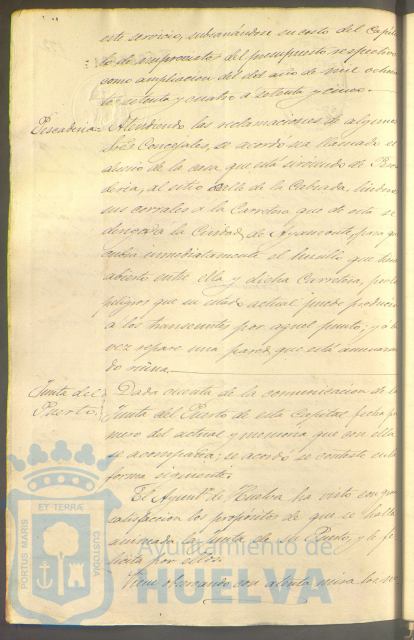 este servicio, subsanándose su costo del Capítu
lo de imprevistos del presupuesto respectivo
como ampliacion del del año de mil ochocien
tos setenta y cuatro a setenta y cinco.
Atendiendo las reclamaciones de algunos
Sres Concejales, se acordó sea llamado el
dueño de la casa, que está sirviendo de
al sitio Calle de la Calzada, lindero
sus corrales a la Carretera que de esta se
dirige a la Ciudad de Ayamonte, para que
cubra inmediatamente el que
abierto entre ella y dicha Carretera, por los
peligros que su estado actual puede producir
a los transeuntes por aquel punto; y a la
vez repare una pared que está amenazan
do ruina.
Junta del
Puerto.
Dada cuenta de la comunicacion de la
Junta del Puerto de esta Capital fecha pri
mero del actual y memoria que con ella
se acompaña; se acordó se conteste en la
forma siguiente.
El Ayunt.º de Huelva ha visto con gran
satisfaccion los propósitos de que se halla
animada la Junta de su Puerto, y le fe
licita por ellos.
Viene observando con atenta mirada los
PORTUS MARIS
ET TERRA
CUSTODIA
Ayuntamiento de
HUELVA